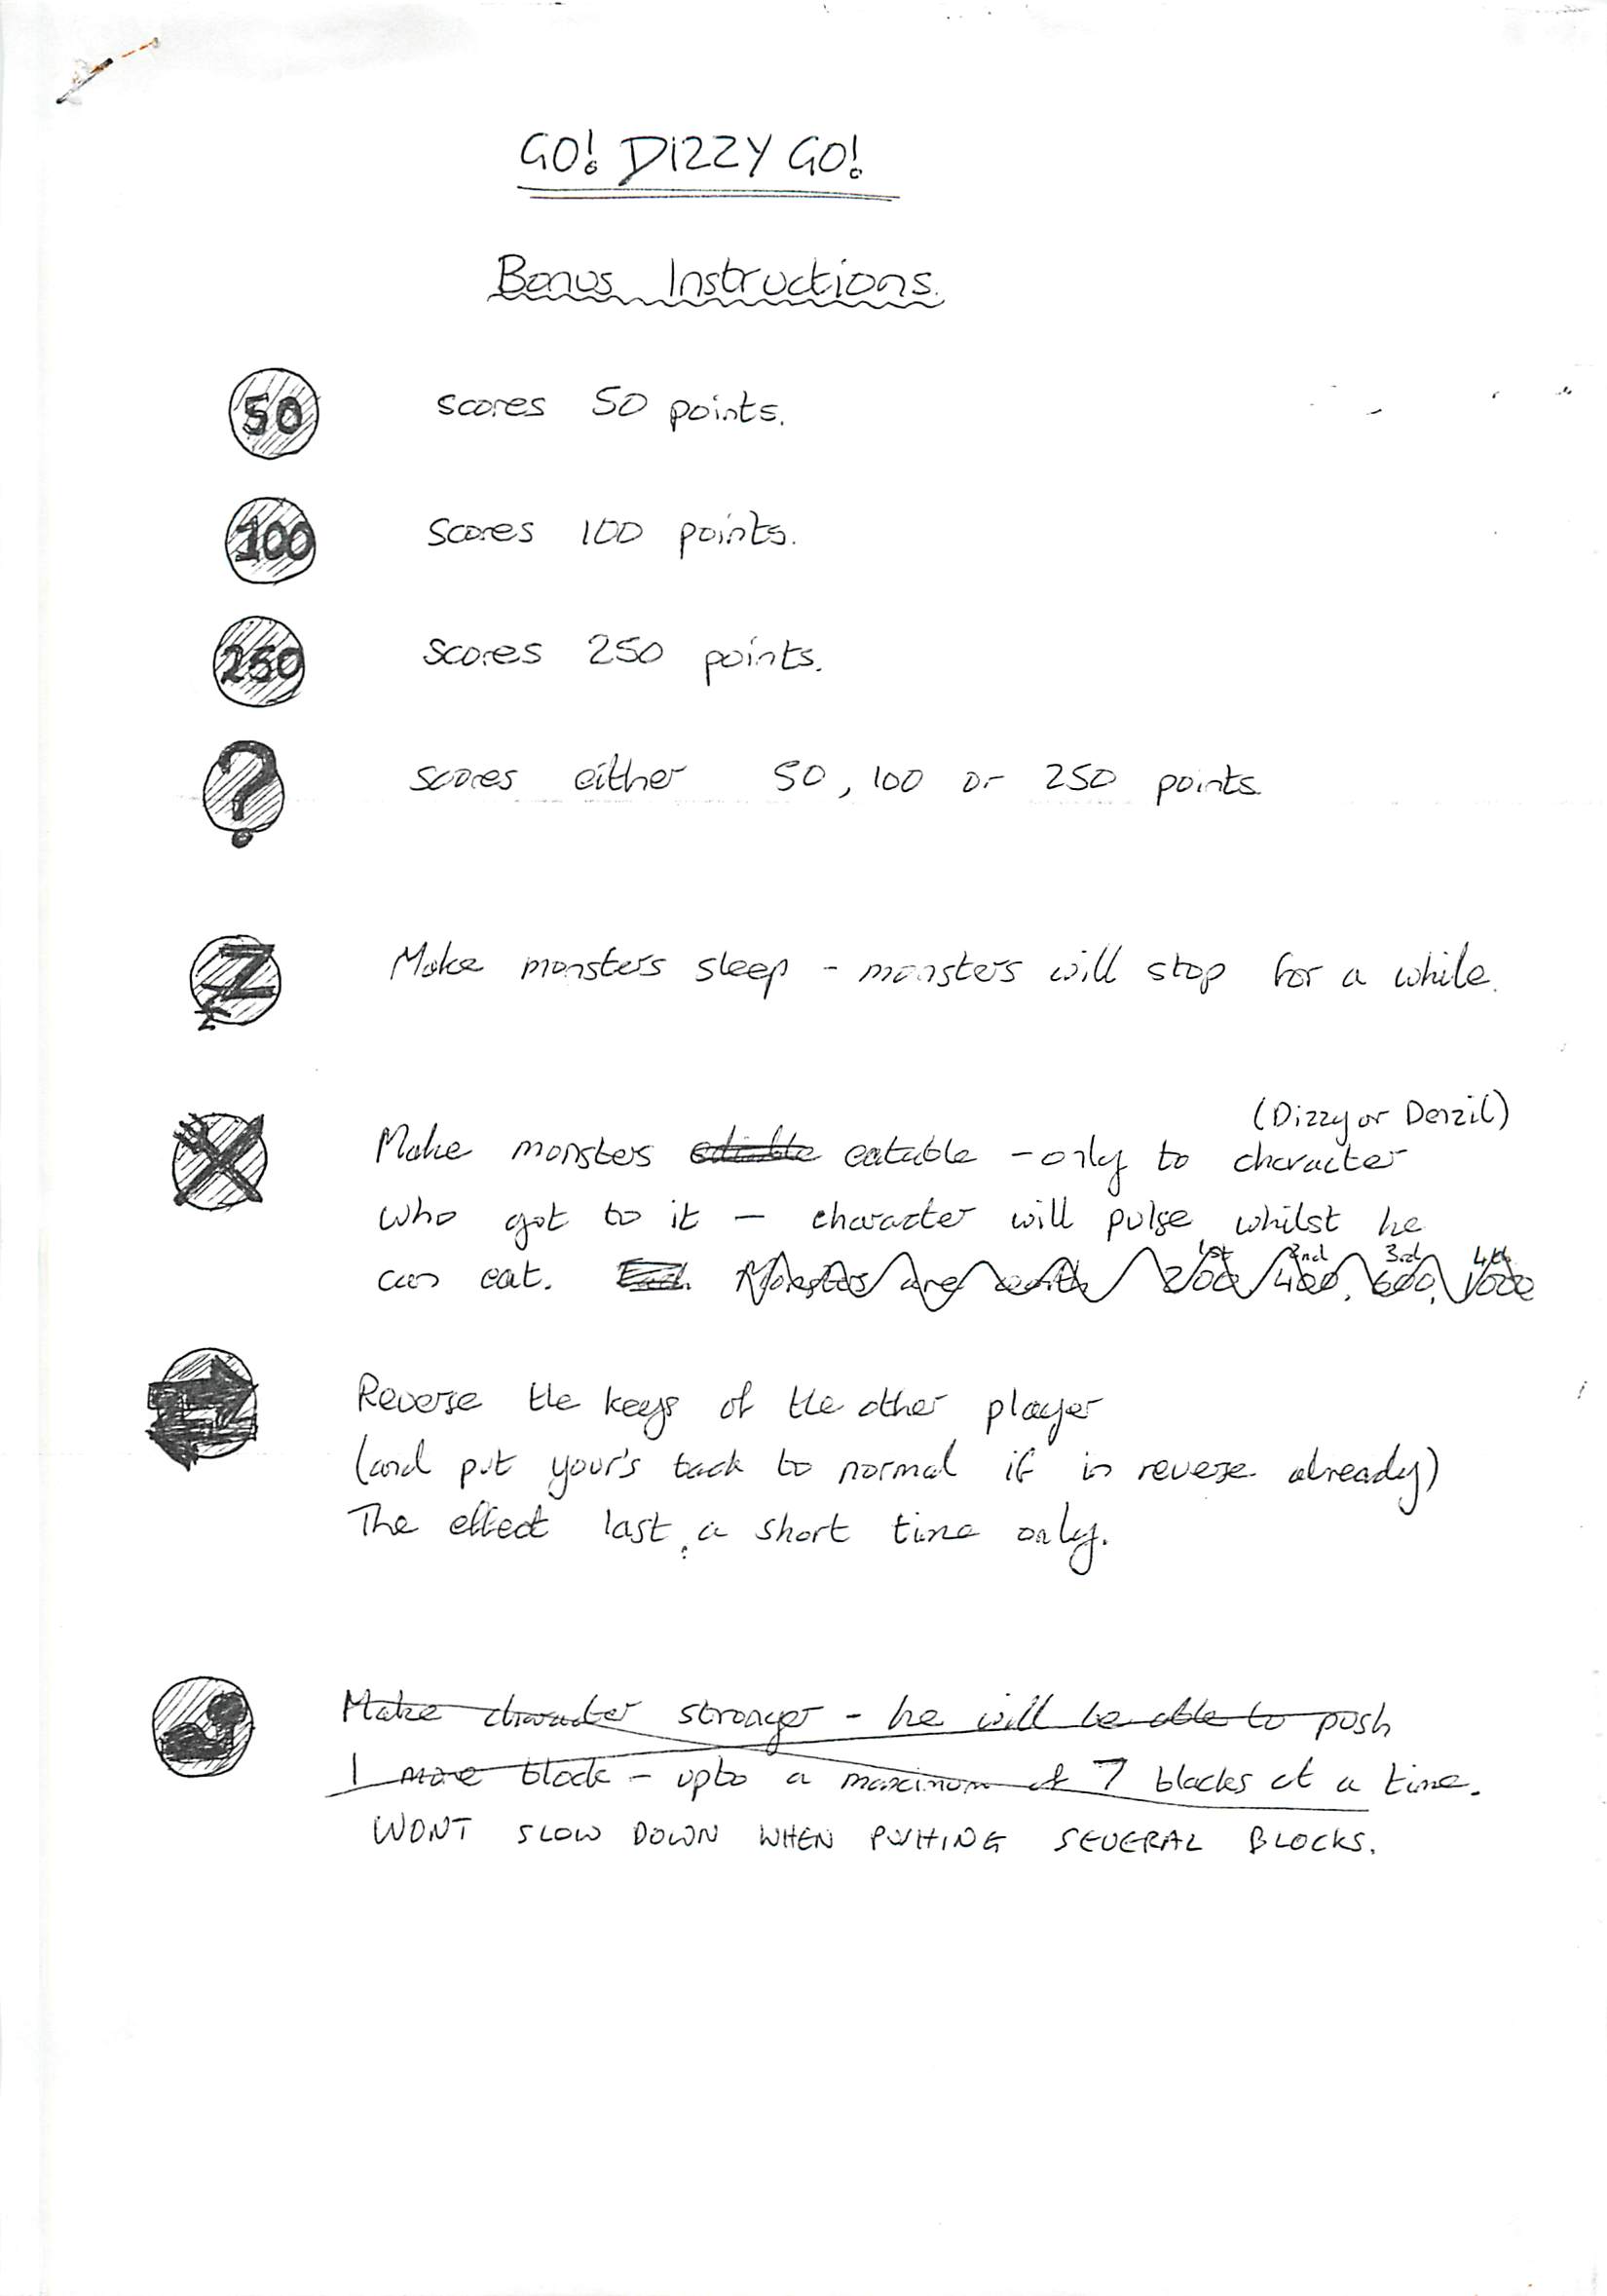 GO! DIZZY GO!
Bonus Instructions.
50 scores 50 points.
100 scores 100 points.
250 scores 250 points.
? scores either 50, 100 or 250 points.
Z z Make monsters sleep - monsters will stop for a while.
(Dizzy or Denzil)
Make monsters edible eatable - only to character
who got to it - character will pulse whilst he
1st 2nd 3rd 4th
can eat. Each Monsters are worth 200, 400, 600, 1000
Reverse the keys of the other player
(and put your's back to normal if in reverse already)
The effect last a short time only.
Make character stronger - he will be able to push
1 more block - upto a maximum of 7 blocks at a time.
WONT SLOW DOWN WHEN PUSHING SEVERAL BLOCKS.